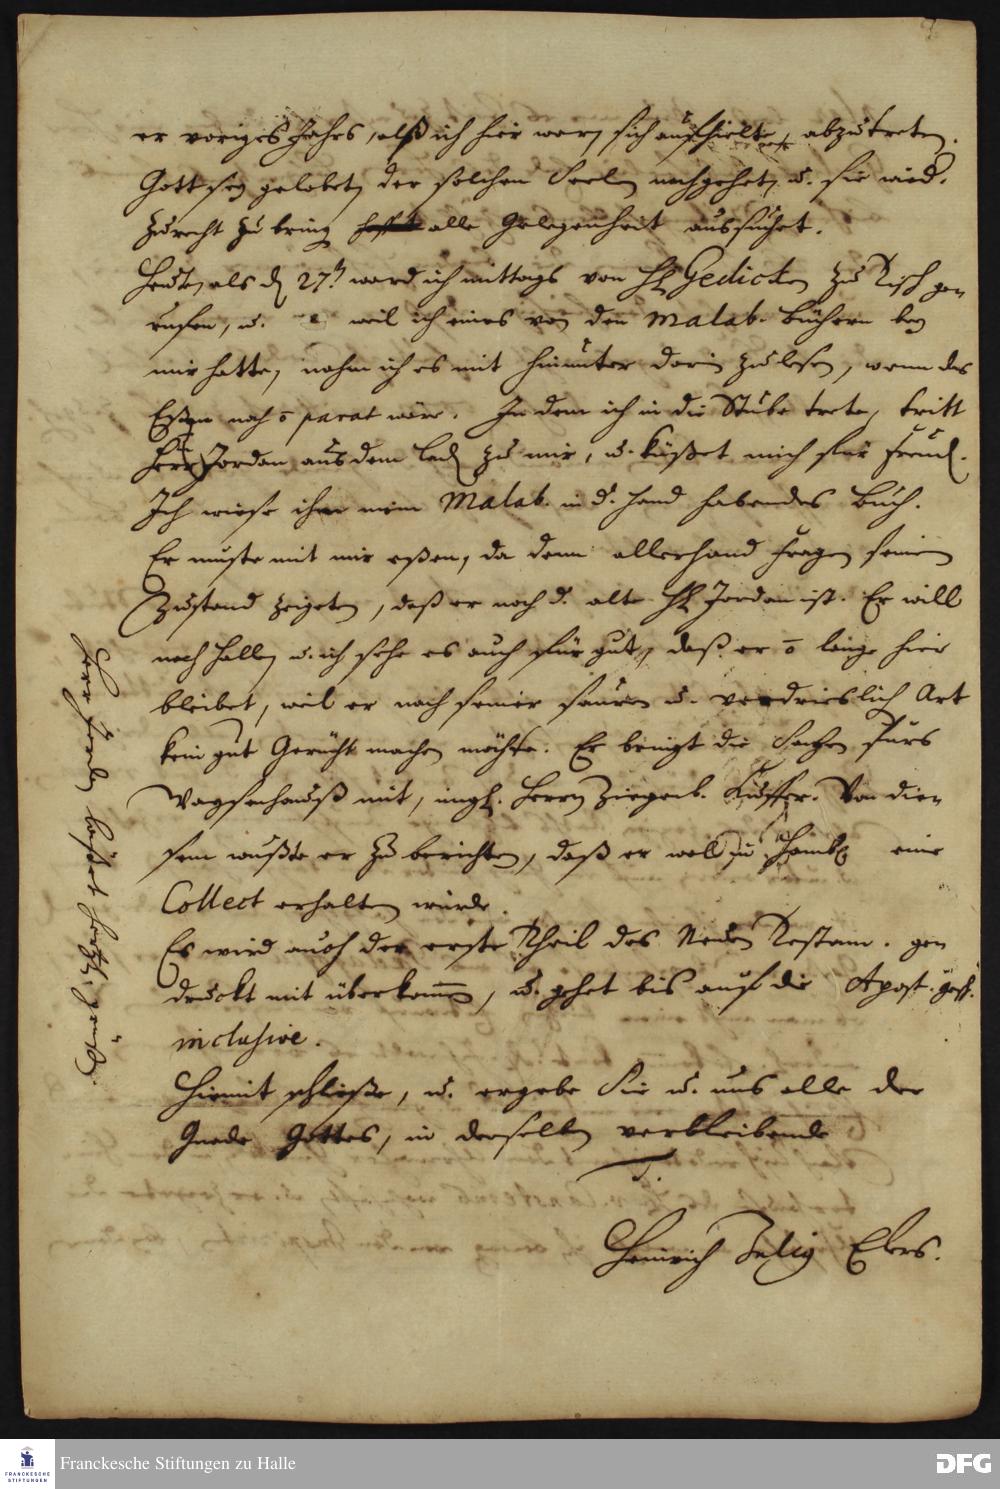 er voriges Jahr, alß ich hier war, sich aufhielte, abzutreten.
Gott sey gelobet, der solchen Seelen nachgehet, u. sie wied.
zurecht zu bringen alle Gelegenheit aussuchet.
Heute, als d. 27. ward ich mittags von H. Gedicken zu Tisch ge-
rufen, u. weil ich eines von den Malab. Büchern bey
mir hatte, nahm ich es mit hinunter darin zu lesen, wenn das
Eßen noch ō parat wäre. In dem ich in die Stube trete, tritt
Herr Jordan aus dem zu mir, u. küßet mich für Freud.
Ich wiese ihm mein Malab. in d. Hand habendes Buch.
Er muste mit mir eßen, da denn allerhand Fragen seinen
Zustand zeigeten, daß er noch d. alte H. Jordan ist. Er will
nach Halle, u. ich sehe es auch für gut, daß er ō lange hier
bleibet, weil er nach seiner sauren u. verdrieslich Art
kein gut Gerücht machen möchte. Er bringt die Sachen fürs
Waysenhauß mit, imgl. Herrn Ziegenb. Kuffer. Von die-
sem wußte er zu berichten, daß er wol in Hamb. eine
Collect erhalten würde.
Es wird auch der erste Theil des Neuen Testam. ge-
druckt mit überkom̄en, u. gehet bis auf die Apost. gesch.
inclusive.
Hiemit schließe, u. ergebe Sie u. uns alle der
Gnade Gottes, in derselben verbleibende
D.
Heinrich Julius Elers.
Herr Jordan läßet hertzl. grüßen.
Franckesche Stiftungen zu Halle
FRANCKESCHE
STIFTUNGEN
DFG